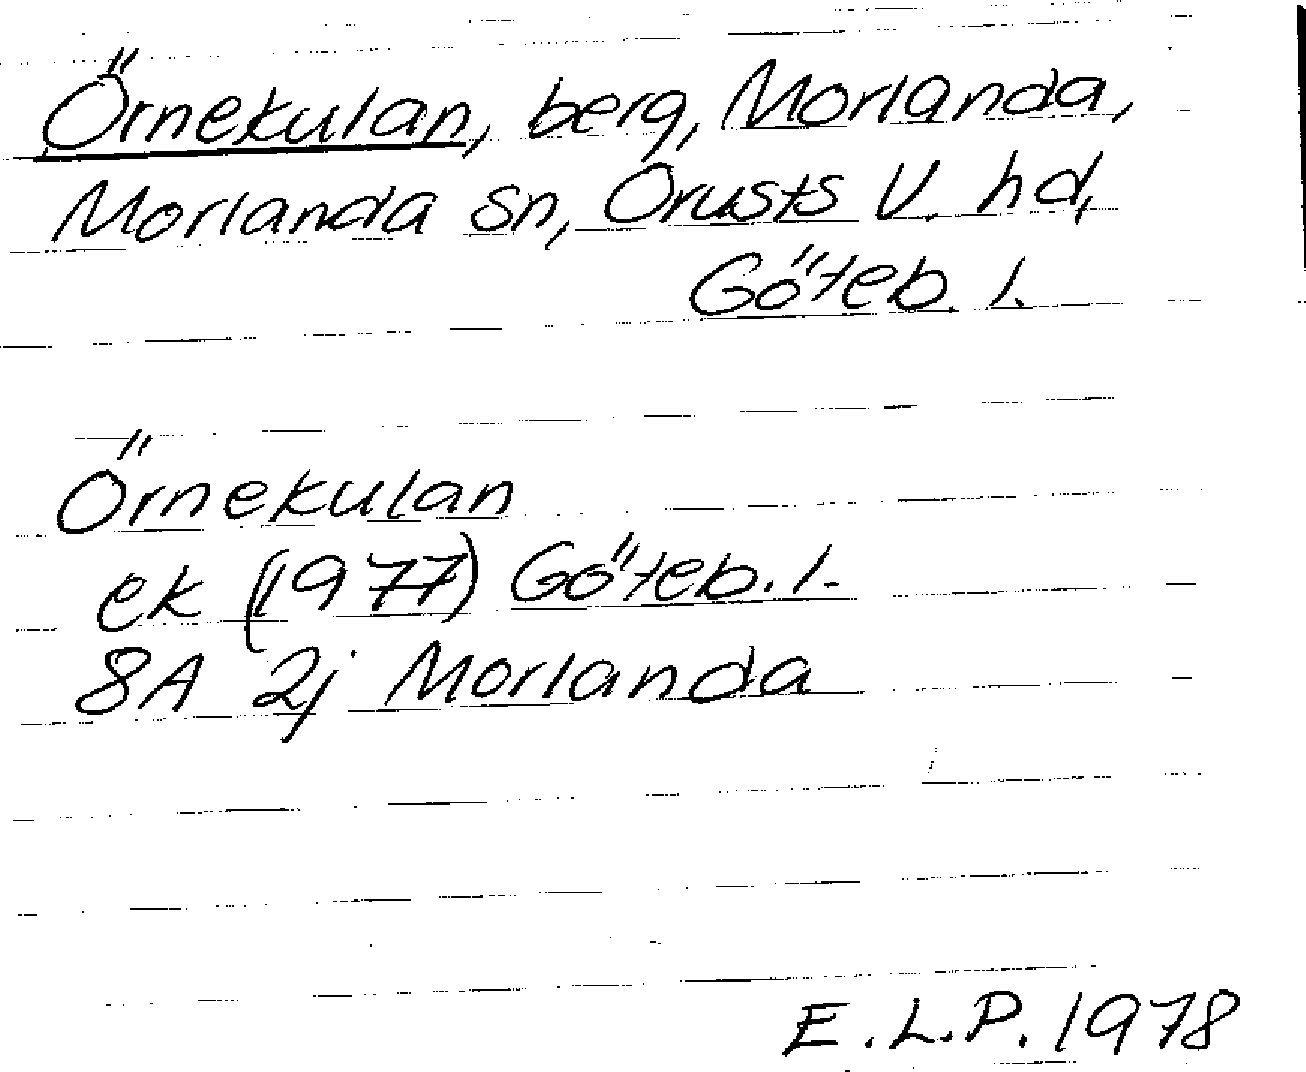 Örnekulan, berg, Morlanda,
Morlanda sn, Orusts V. hd,
Göteb. l.
Örnekulan
ek (1977) Göteb. l.
8A 2j Morlanda
E.L.P. 1978